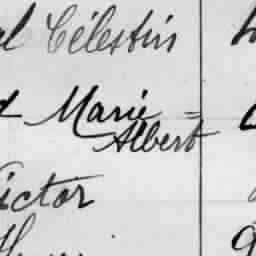 Célestin
Marie =
Albert
ictor